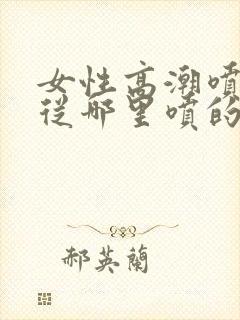 女性高潮噴
從哪里噴的
郝英蘭